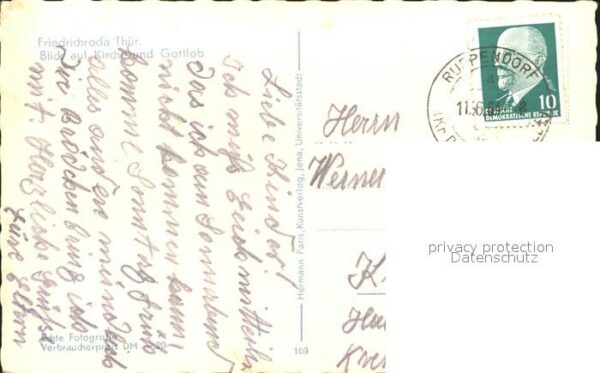 Friedrichroda Thür.
Blick auf Kirche und Gottlob
Liebe Kinder!
Ich muß Euch mitteilen
Das ich am Sonnabend
nicht kommen kann!
komme Sonntag früh
alles andere mündlich
Für Brötchen bring ich
mit. Herzliche Grüße
Eure Eltern
Echte Fotografie
Verbraucherpreis DM
Hermann Paris, Kunstverlag, Jena, Universitätsstadt
169
Herrn
Werner
RUPPENDORF
a
11.6.64
10
DEUTSCHE
DEMOKRATISCHE REPUBLIK
privacy protection
Datenschutz